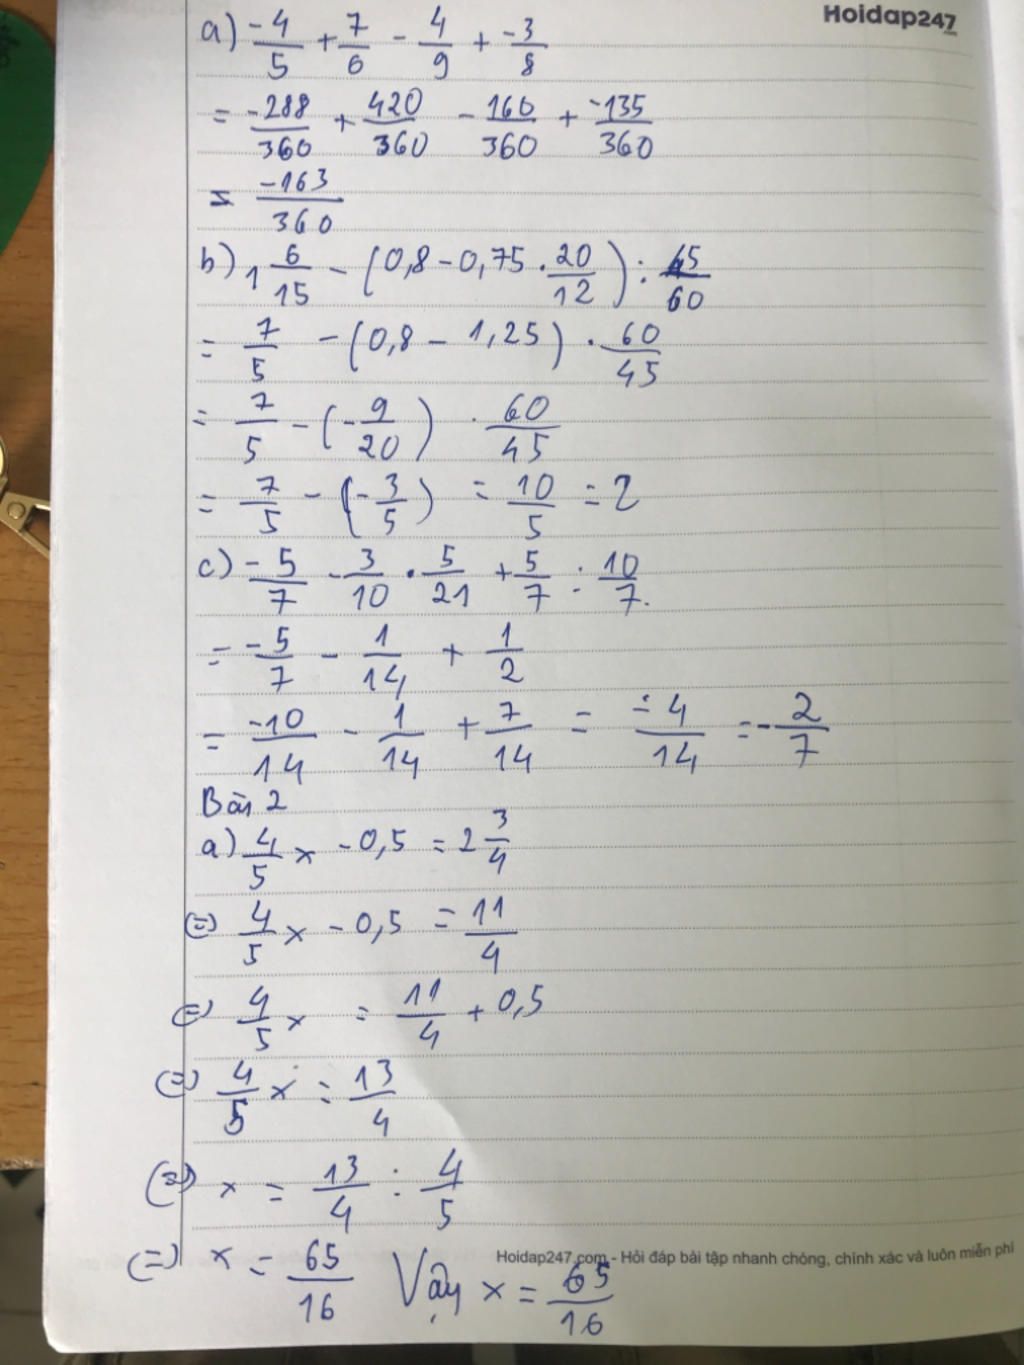 Hoidap247
a) -4/5 + 7/6 - 4/9 + -3/8
= -288/360 + 420/360 - 160/360 + -135/360
= -163/360
b) 1 6/15 - (0,8 - 0,75 . 20/12) : 45/60
= 7/5 - (0,8 - 1,25) . 60/45
= 7/5 - (-9/20) . 60/45
= 7/5 - (-3/5) = 10/5 = 2
c) -5/7 - 3/10 . 5/21 + 5/7 : 10/7.
= -5/7 - 1/14 + 1/2
= -10/14 - 1/14 + 7/14 = -4/14 = -2/7
Bài 2
a) 4/5 x - 0,5 = 2 3/4
(=) 4/5 x - 0,5 = 11/4
(=) 4/5 x = 11/4 + 0,5
(=) 4/5 x = 13/4
(=) x = 13/4 : 4/5
(=) x = 65/16 Vậy x = 65/16
Hoidap247.com - Hỏi đáp bài tập nhanh chóng, chính xác và luôn miễn phí